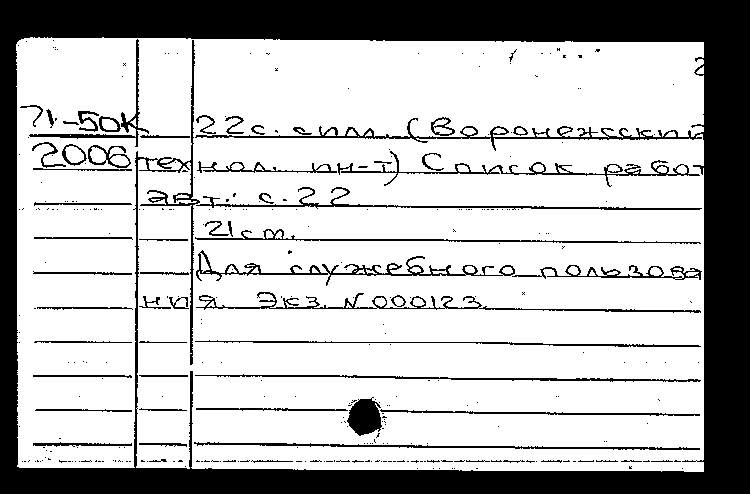 71-50К 22с. силл. (Воронежсский
2006 технол. ин-т) Список работ
авт.: с. 22
21 см.
Для служебного пользова
ния. Экз. N 000123